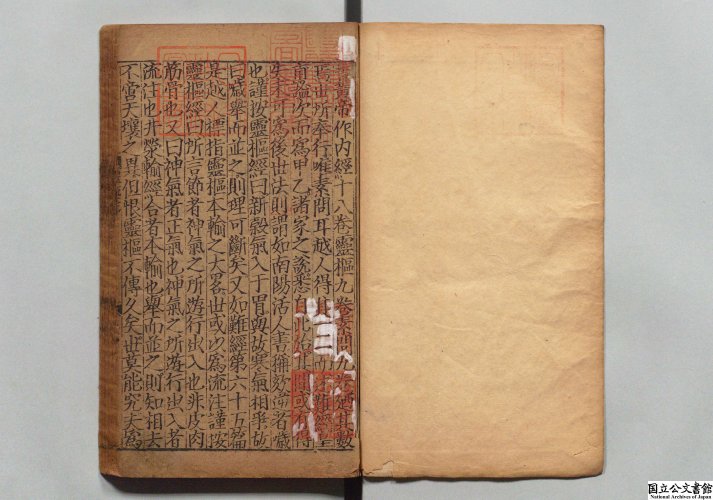 黃帝作內經十八卷靈樞九卷素問九卷迺其數
焉世所奉行唯素問耳越人得其一二而述難經皇
甫謐次而爲甲乙諸家之說悉自此始其間或有得
失未可爲後世法則謂如南陽活人書稱欬逆者噦
也謹按靈樞經曰新穀氣入于胃與故寒氣相爭故
曰噦舉而並之則理可斷矣又如難經第六十五篇
是越人標指靈樞本輸之大畧世或以爲流注謹按
靈樞經曰所言節者神氣之所遊行出入也非皮肉
筋骨也又曰神氣者正氣也神氣之所遊行出入者
流注也井滎輸經合者本輸也舉而並之則知相去
不啻天壤之異但恨靈樞不傳久矣世莫能究夫爲
国立公文書館
National Archives of Japan